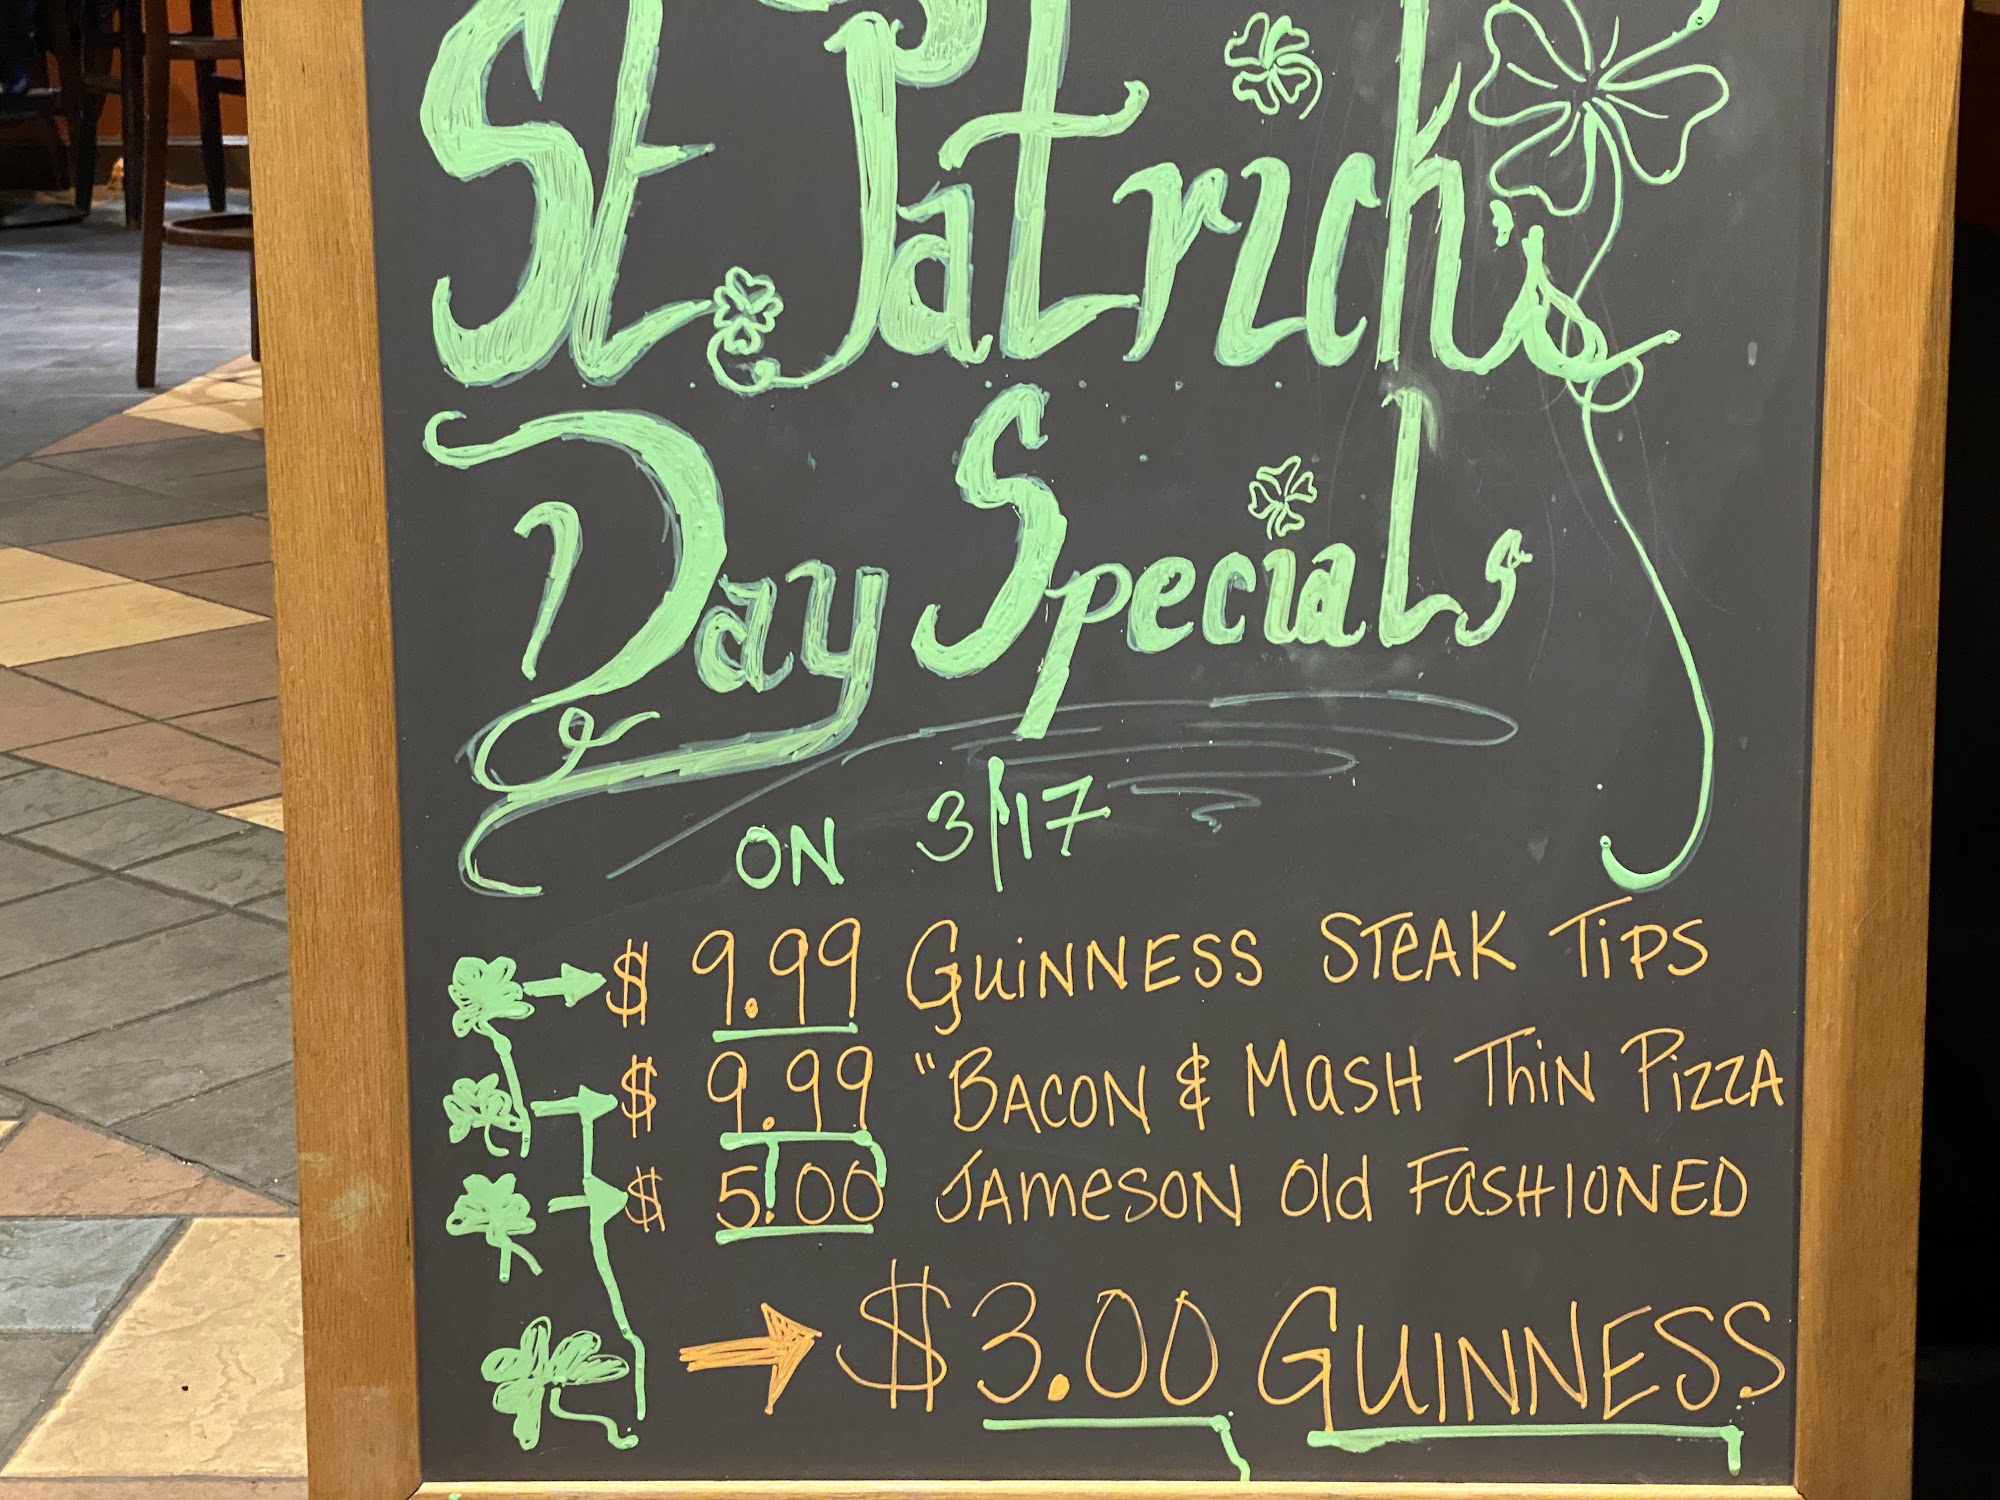 St. Patrick's
Day Specials
ON 3/17
$ 9.99 GUINNESS STEAK TIPS
$ 9.99 "BACON & MASH THIN PIZZA
$ 5.00 JAMESON Old FASHIONED
$3.00 GUINNESS